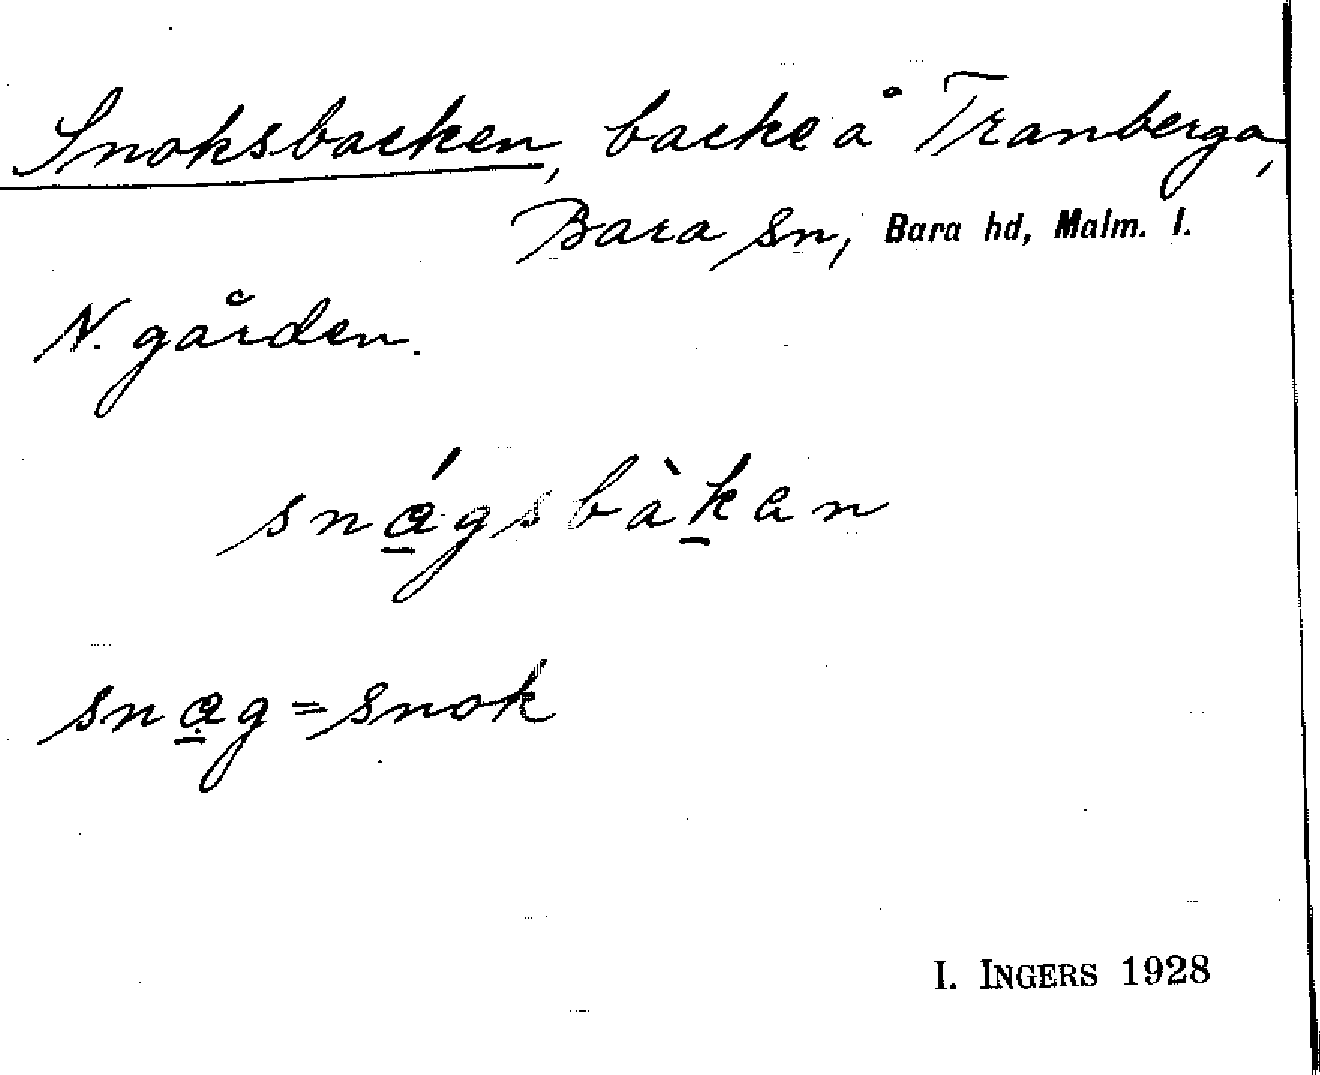 Snoksbacken, backe å Tranberga,
Bara sn, Bara hd, Malm. l.
N. gården.
sná̲gsbàk̲an
sna̲g = snok
I. INGERS 1928